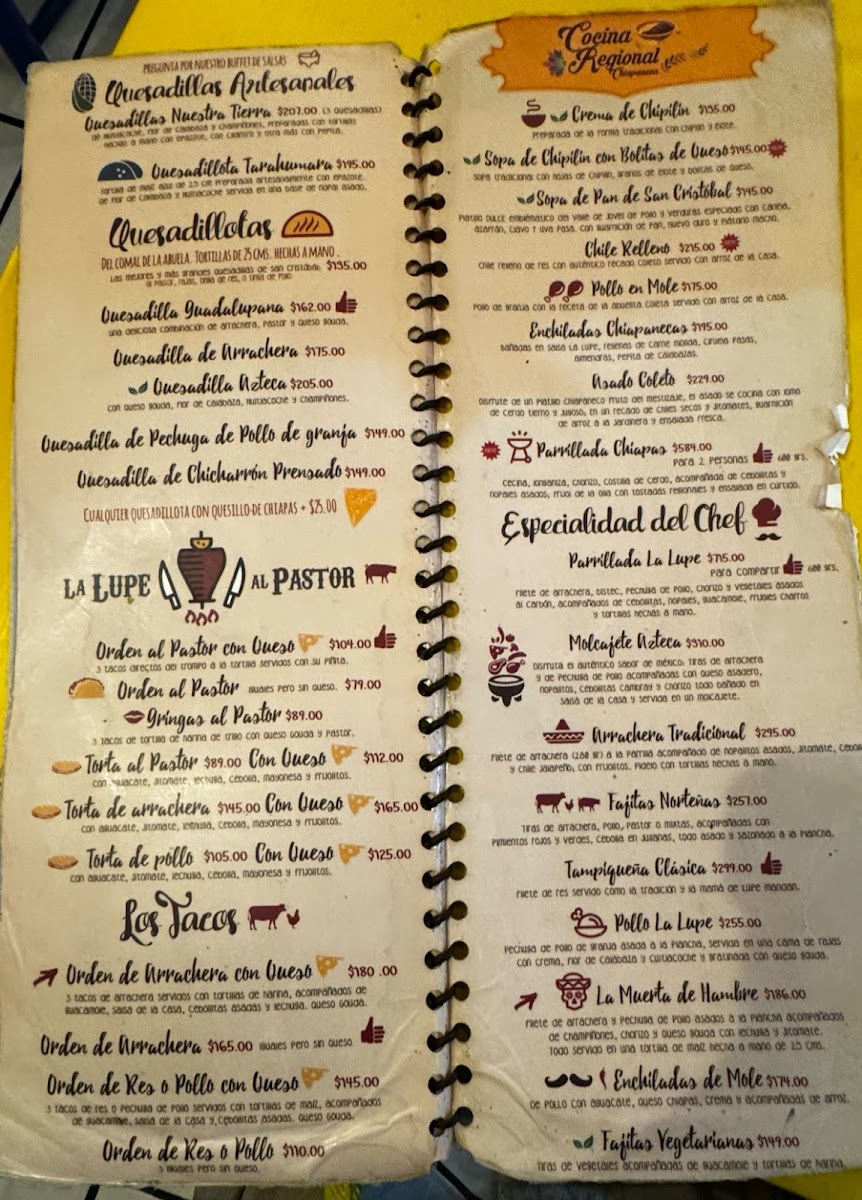 PREGUNTA POR NUESTRO BUFFET DE SALSAS
Quesadillas Artesanales
Quesadillas Nuestra Tierra $207.00 (3 quesadillas)
de huitlacoche, flor de calabaza y champiñones, preparadas con tortillas
hechas a mano con epazote, con cilantro y otra más con pepita.
Quesadillota Tarahumara $195.00
Tortilla de maíz azul de 25 cm preparada artesanalmente con epazote,
de flor de calabaza y huitlacoche servida en una base de nopal asado.
Quesadillotas
DEL COMAL DE LA ABUELA. TORTILLAS DE 25 CMS. HECHAS A MANO.
Las mejores y más grandes quesadillas de san cristóbal. $135.00
al pastor, rajas, tinga de res, o tinga de pollo
Quesadilla Guadalupana $162.00
una deliciosa combinación de arrachera, pastor y queso gouda.
Quesadilla de Arrachera $175.00
Quesadilla Azteca $205.00
con queso gouda, flor de calabaza, huitlacoche y champiñones.
Quesadilla de Pechuga de Pollo de granja $149.00
Quesadilla de Chicharrón Prensado $149.00
CUALQUIER QUESADILLOTA CON QUESILLO DE CHIAPAS + $25.00
LA LUPE AL PASTOR
Orden al Pastor con Queso $104.00
3 tacos directos del trompo a la tortilla servidos con su piñita.
Orden al Pastor iguales pero sin queso. $79.00
Gringas al Pastor $89.00
3 tacos de tortilla de harina de trigo con queso gouda y pastor.
Torta al Pastor $89.00 Con Queso $112.00
con aguacate, jitomate, lechuga, cebolla, mayonesa y frijolitos.
Torta de arrachera $145.00 Con Queso $165.00
con aguacate, jitomate, lechuga, cebolla, mayonesa y frijolitos.
Torta de pollo $105.00 Con Queso $125.00
con aguacate, jitomate, lechuga, cebolla, mayonesa y frijolitos.
Los Tacos
Orden de Arrachera con Queso $180 .00
3 tacos de arrachera servidos con tortillas de harina, acompañados de
guacamole, salsa de la casa, cebollitas asadas y lechuga. queso gouda.
Orden de Arrachera $165.00 iguales pero sin queso
Orden de Res o Pollo con Queso $145.00
3 tacos de res o pechuga de pollo servidos con tortillas de maíz, acompañados
de guacamole, salsa de la casa y cebollitas asadas. queso gouda.
Orden de Res o Pollo $110.00
3 iguales pero sin queso.
Cocina
Regional
Chiapaneca
Crema de Chipilín $135.00
Preparada de la forma tradicional con chipilín y elote.
Sopa de Chipilín con Bolitas de Queso $145.00
sopa tradicional con hojas de chipilín, granos de elote y bolitas de queso.
Sopa de Pan de San Cristóbal $145.00
Platillo dulce emblemático del valle de Jovel de pollo y verduras especiado con canela,
azafrán, clavo y uva pasa. con guarnición de pan, huevo duro y plátano macho.
Chile Relleno $215.00
Chile relleno de res con auténtico recado coleto servido con arroz de la casa.
Pollo en Mole $175.00
Pollo de granja con la receta de la abuelita coleta servido con arroz de la casa.
Enchiladas Chiapanecas $195.00
Bañadas en salsa La Lupe, rellenas de carne molida, ciruela pasas,
almendras, pepita de calabazas.
Asado Coleto $229.00
Disfrute de un platillo chiapaneco fruto del mestizaje, el asado se cocina con lomo
de cerdo tierno y jugoso, en un recado de chiles secos y jitomates, guarnición
de arroz a la jardinera y ensalada fresca.
Parrillada Chiapas $584.00
Para 2 Personas 600 grs.
Cecina, longaniza, chorizo, costilla de cerdo, acompañada de cebollitas y
nopales asados, frijol de la olla con tostadas regionales y ensalada en curtido.
Especialidad del Chef
Parrillada La Lupe $715.00
Para compartir 600 grs.
Filete de arrachera, bistec, pechuga de pollo, chorizo y vegetales asados
al carbón, acompañados de cebollitas, nopales, guacamole, frijoles charros
y tortillas hechas a mano.
Molcajete Azteca $310.00
Disfruta el auténtico sabor de méxico: tiras de arrachera
y de pechuga de pollo acompañadas con queso asadero,
nopalitos, cebollitas cambray y chorizo todo bañado en
salsa de la casa y servida en un molcajete.
Arrachera Tradicional $295.00
Filete de arrachera (200 gr) a la parrilla acompañado de nopalitos asados, jitomate, cebolla
y chile jalapeño, con frijolitos. Pídelo con tortillas hechas a mano.
Fajitas Norteñas $257.00
Tiras de arrachera, pollo, pastor o mixtas, acompañadas con
pimientos rojos y verdes, cebolla en julianas, todo asado y sazonado a la plancha.
Tampiqueña Clásica $299.00
Filete de res servido como la tradición y la mamá de Lupe mandan.
Pollo La Lupe $255.00
Pechuga de pollo de granja asada a la plancha, servida en una cama de rajas
con crema, flor de calabaza y cuitlacoche y gratinada con queso gouda.
La Muerta de Hambre $186.00
Filete de arrachera y pechuga de pollo asados a la plancha acompañados
de champiñones, chorizo y queso gouda con lechuga y jitomate.
Todo servido en una tortilla de maíz hecha a mano de 25 cms.
Enchiladas de Mole $174.00
de pollo con aguacate, queso chiapas, crema y acompañadas de arroz.
Fajitas Vegetarianas $149.00
Tiras de vegetales acompañadas de guacamole y tortillas de harina.